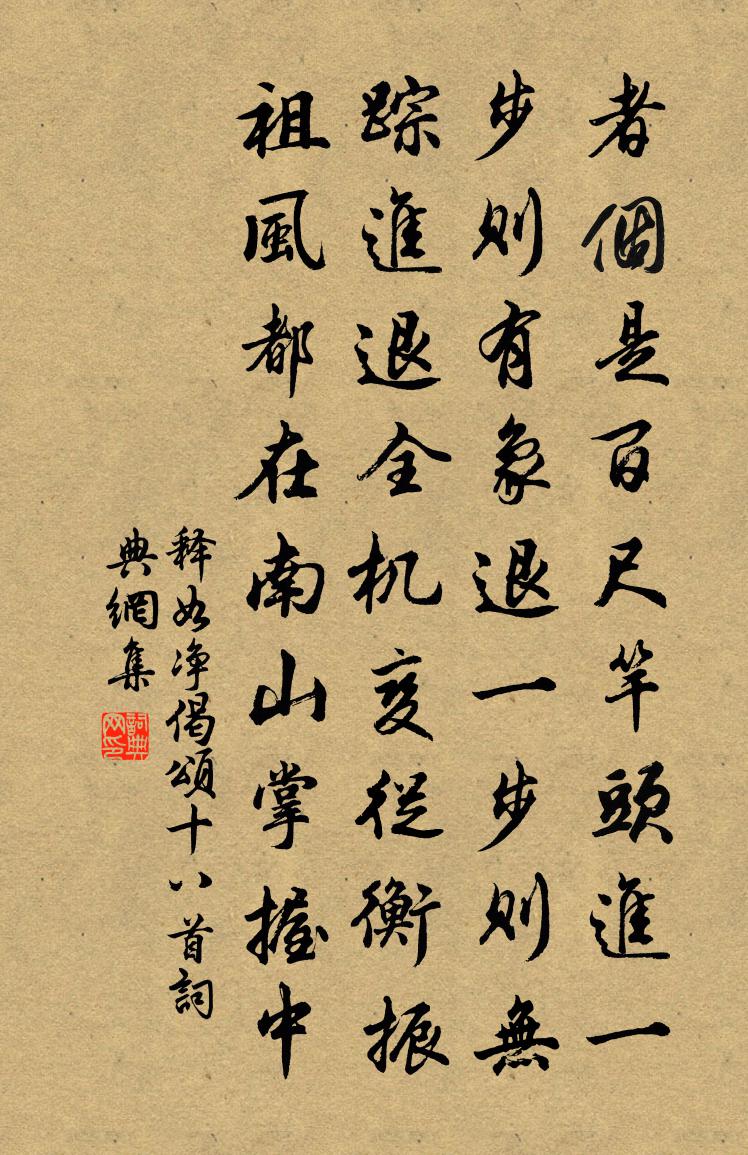 者個是百尺竿頭進一
步則有象退一步則無
踪進退全机变從衡振
祖風都在南山掌握中
释如净偈頌十八首詞
典網集
詞典网印